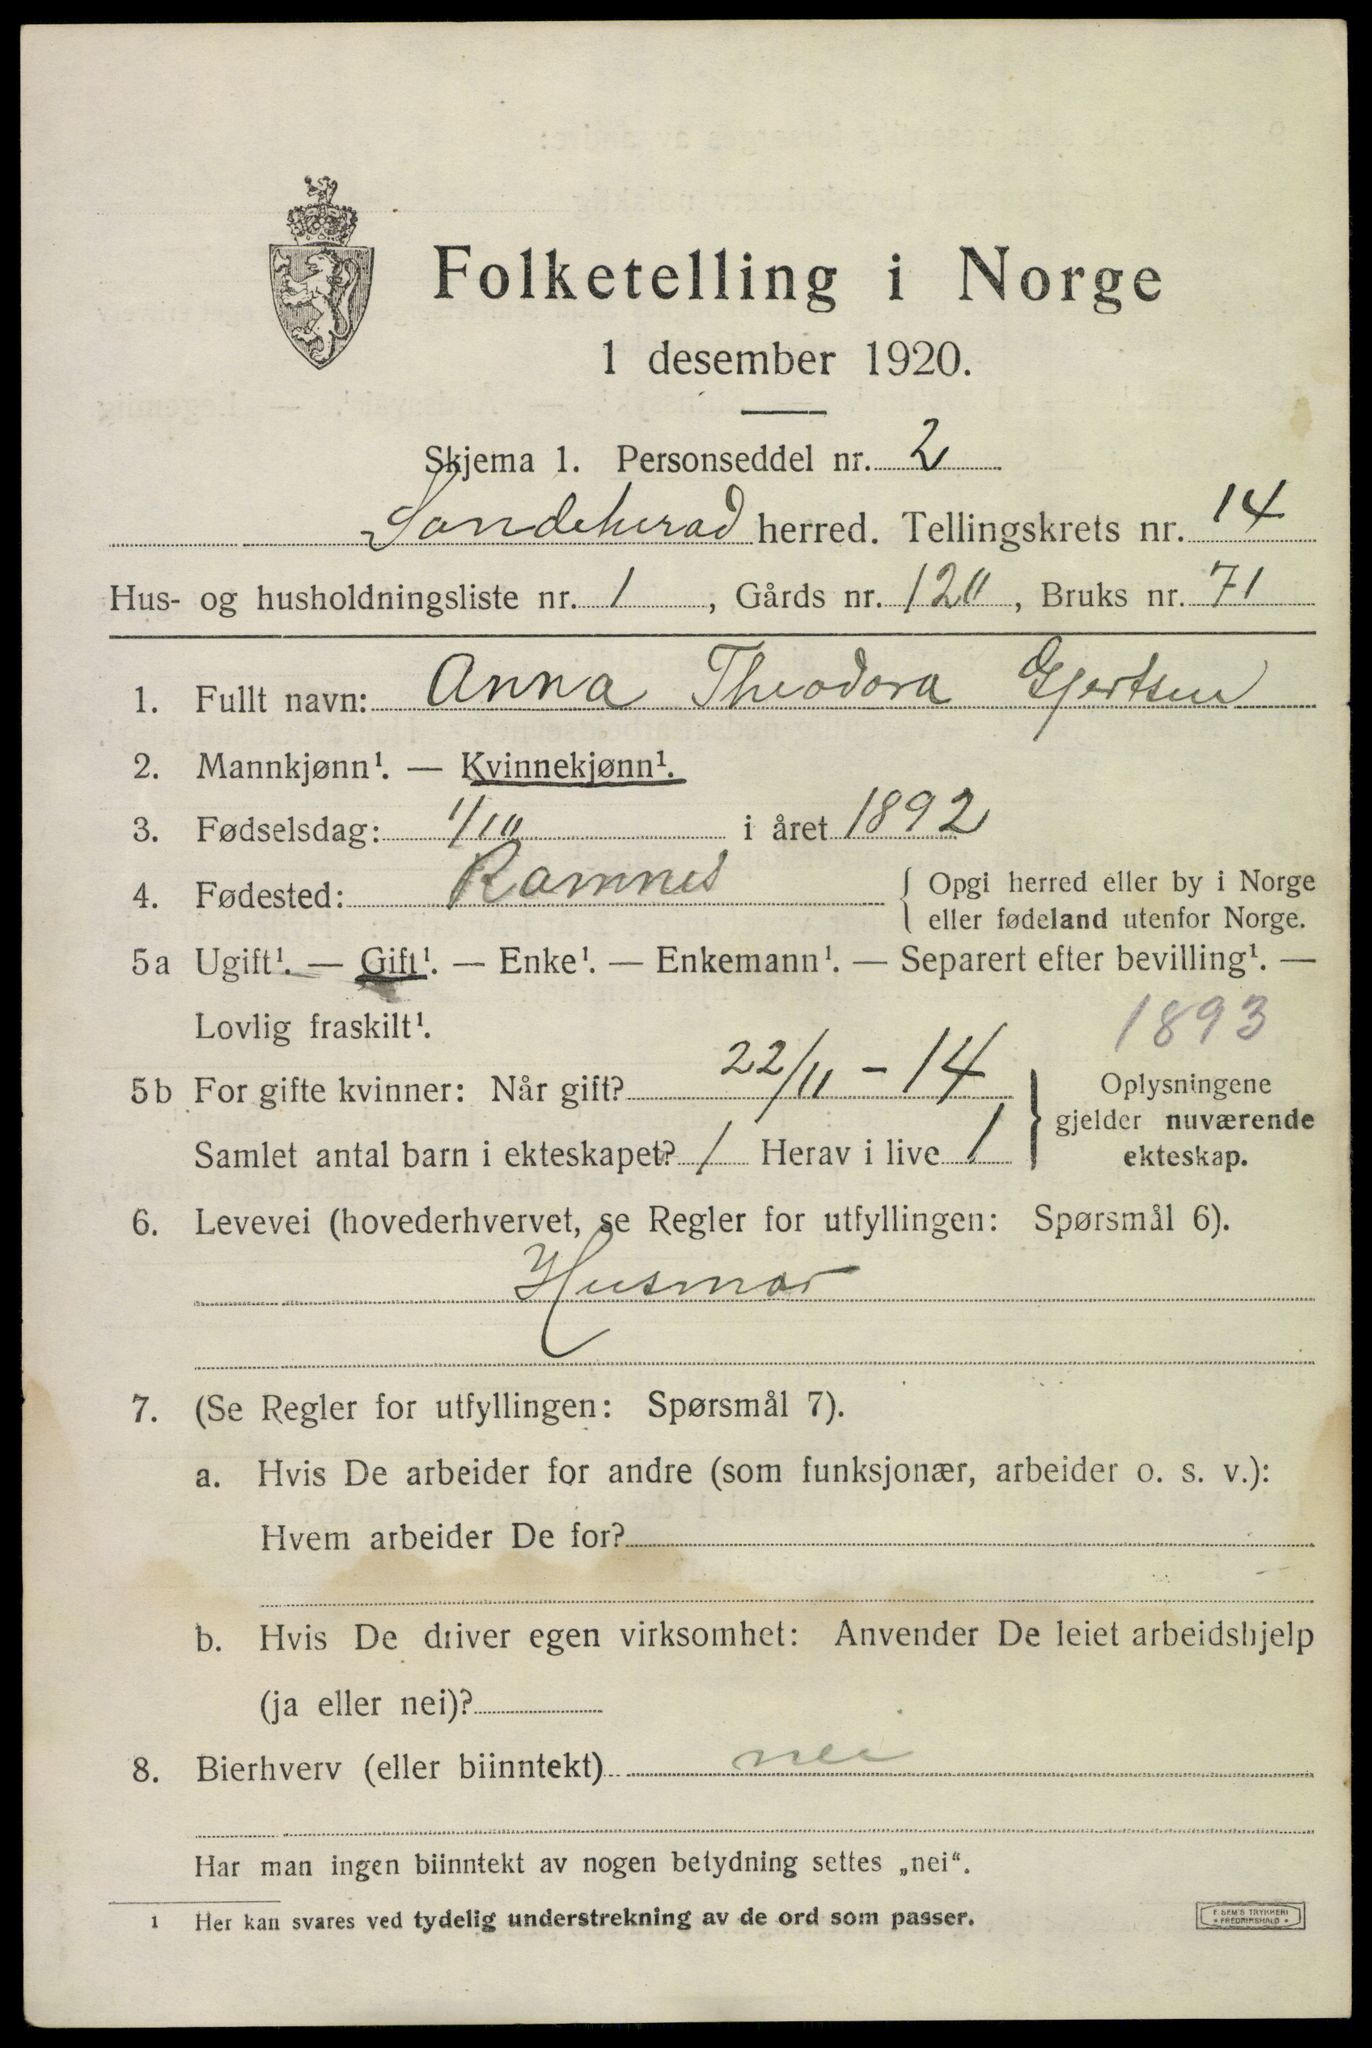 Folketelling i Norge
1 desember 1920.
Skjema 1. Personseddel nr. 2
Sandeherad herred. Tellingskrets nr. 14
Hus- og husholdningsliste nr. 1, Gårds nr. 120, Bruks nr. 71
1. Fullt navn: Anna Theodora Gjertsen
2. Mannkjønn¹. — Kvinnekjønn¹.
3. Fødselsdag: 1/10 i året 1892
4. Fødested: Ramnes { Opgi herred eller by i Norge
eller fødeland utenfor Norge.
5a Ugift¹. — Gift¹. — Enke¹. — Enkemann¹. — Separert efter bevilling¹. —
Lovlig fraskilt¹.
1893
5b For gifte kvinner: Når gift? 22/11 - 14
Samlet antal barn i ekteskapet? 1 Herav i live 1
} Oplysningene
gjelder nuværende
ekteskap.
6. Levevei (hovederhvervet, se Regler for utfyllingen: Spørsmål 6).
Husmor
7. (Se Regler for utfyllingen: Spørsmål 7).
a. Hvis De arbeider for andre (som funksjonær, arbeider o. s. v.):
Hvem arbeider De for?
b. Hvis De driver egen virksomhet: Anvender De leiet arbeidshjelp
(ja eller nei)?
8. Bierhverv (eller biinntekt) nei
Har man ingen biinntekt av nogen betydning settes „nei“.
1 Her kan svares ved tydelig understrekning av de ord som passer.
F. SEM'S TRYKKERI
• FREDRIKSHALD •